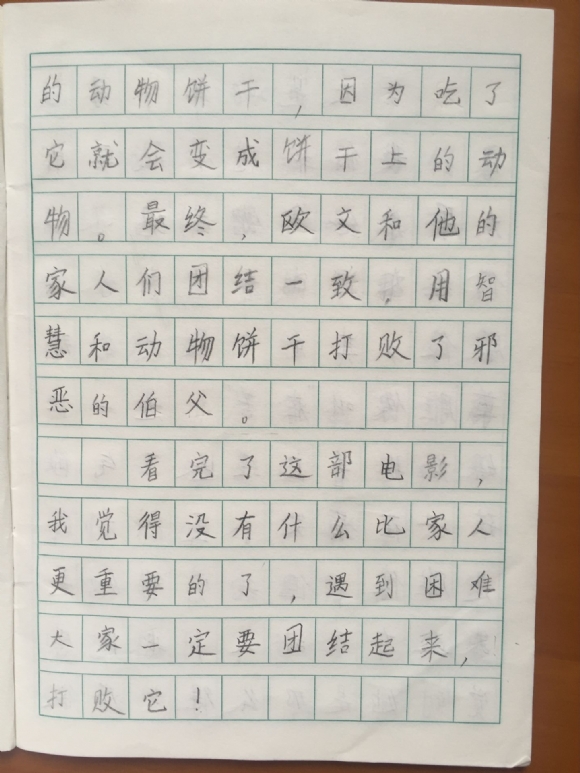 的动物饼干，因为吃了
它就会变成饼干上的动
物。最终，欧文和他的
家人们团结一致，用智
慧和动物饼干打败了邪
恶的伯父。
看完了这部电影，
我觉得没有什么比家人
更重要的了，遇到困难
大家一定要团结起来，
打败它！